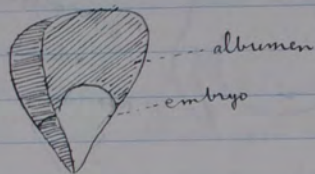 albumen
embryo